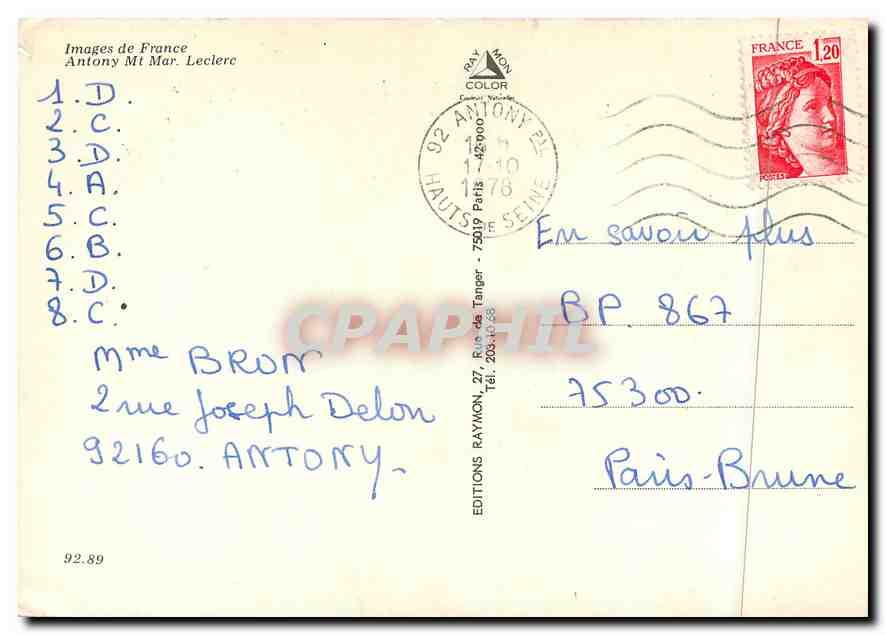 Images de France
Antony Mt Mar. Leclerc
1. D.
2. C.
3. D.
4. A.
5. C.
6. B.
7. D.
8. C.
Mme BRON
2 rue Joseph Delon
92160. ANTONY
92.89
RAY MON
COLOR
Couleurs Naturelles
EDITIONS RAYMON, 27, Rue de Tanger - 75019 Paris 42-000
Tél. 203.10.68
92 ANTONY PAL
17-10
1978
HAUTS DE SEINE
FRANCE 1,20
POSTES
En savoir plus
BP. 867
75300.
Paris-Brune
CPAPHIL